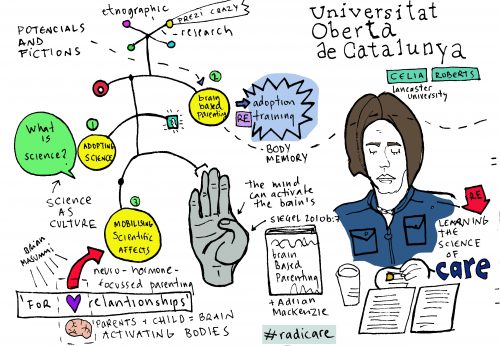 ethnographic
PREZI CRAZY
research
POTENCIALS
AND
FICTIONS
Universitat
Oberta
de Catalunya
CELIA ROBERTS
Lancaster
University
2
brain
based
Parenting
RE
adoption
training
BODY
MEMORY
What
is
Science?
1
ADOPTING
SCIENCE
SCIENCE
AS
CULTURE
3
MOBILISING
Scientific
AFFECTS
the mind
can activate
the brain's
SIEGEL 2010b:7
brain
Based
Parenting
+ Adrian
MacKenzie
Brian
Massumi
neuro-hormone-
focussed parenting
'FOR relationships'
PARENTS + CHILD = BRAIN
ACTIVATING BODIES
#radicare
RE
LEARNING
THE
SCIENCE
OF
care